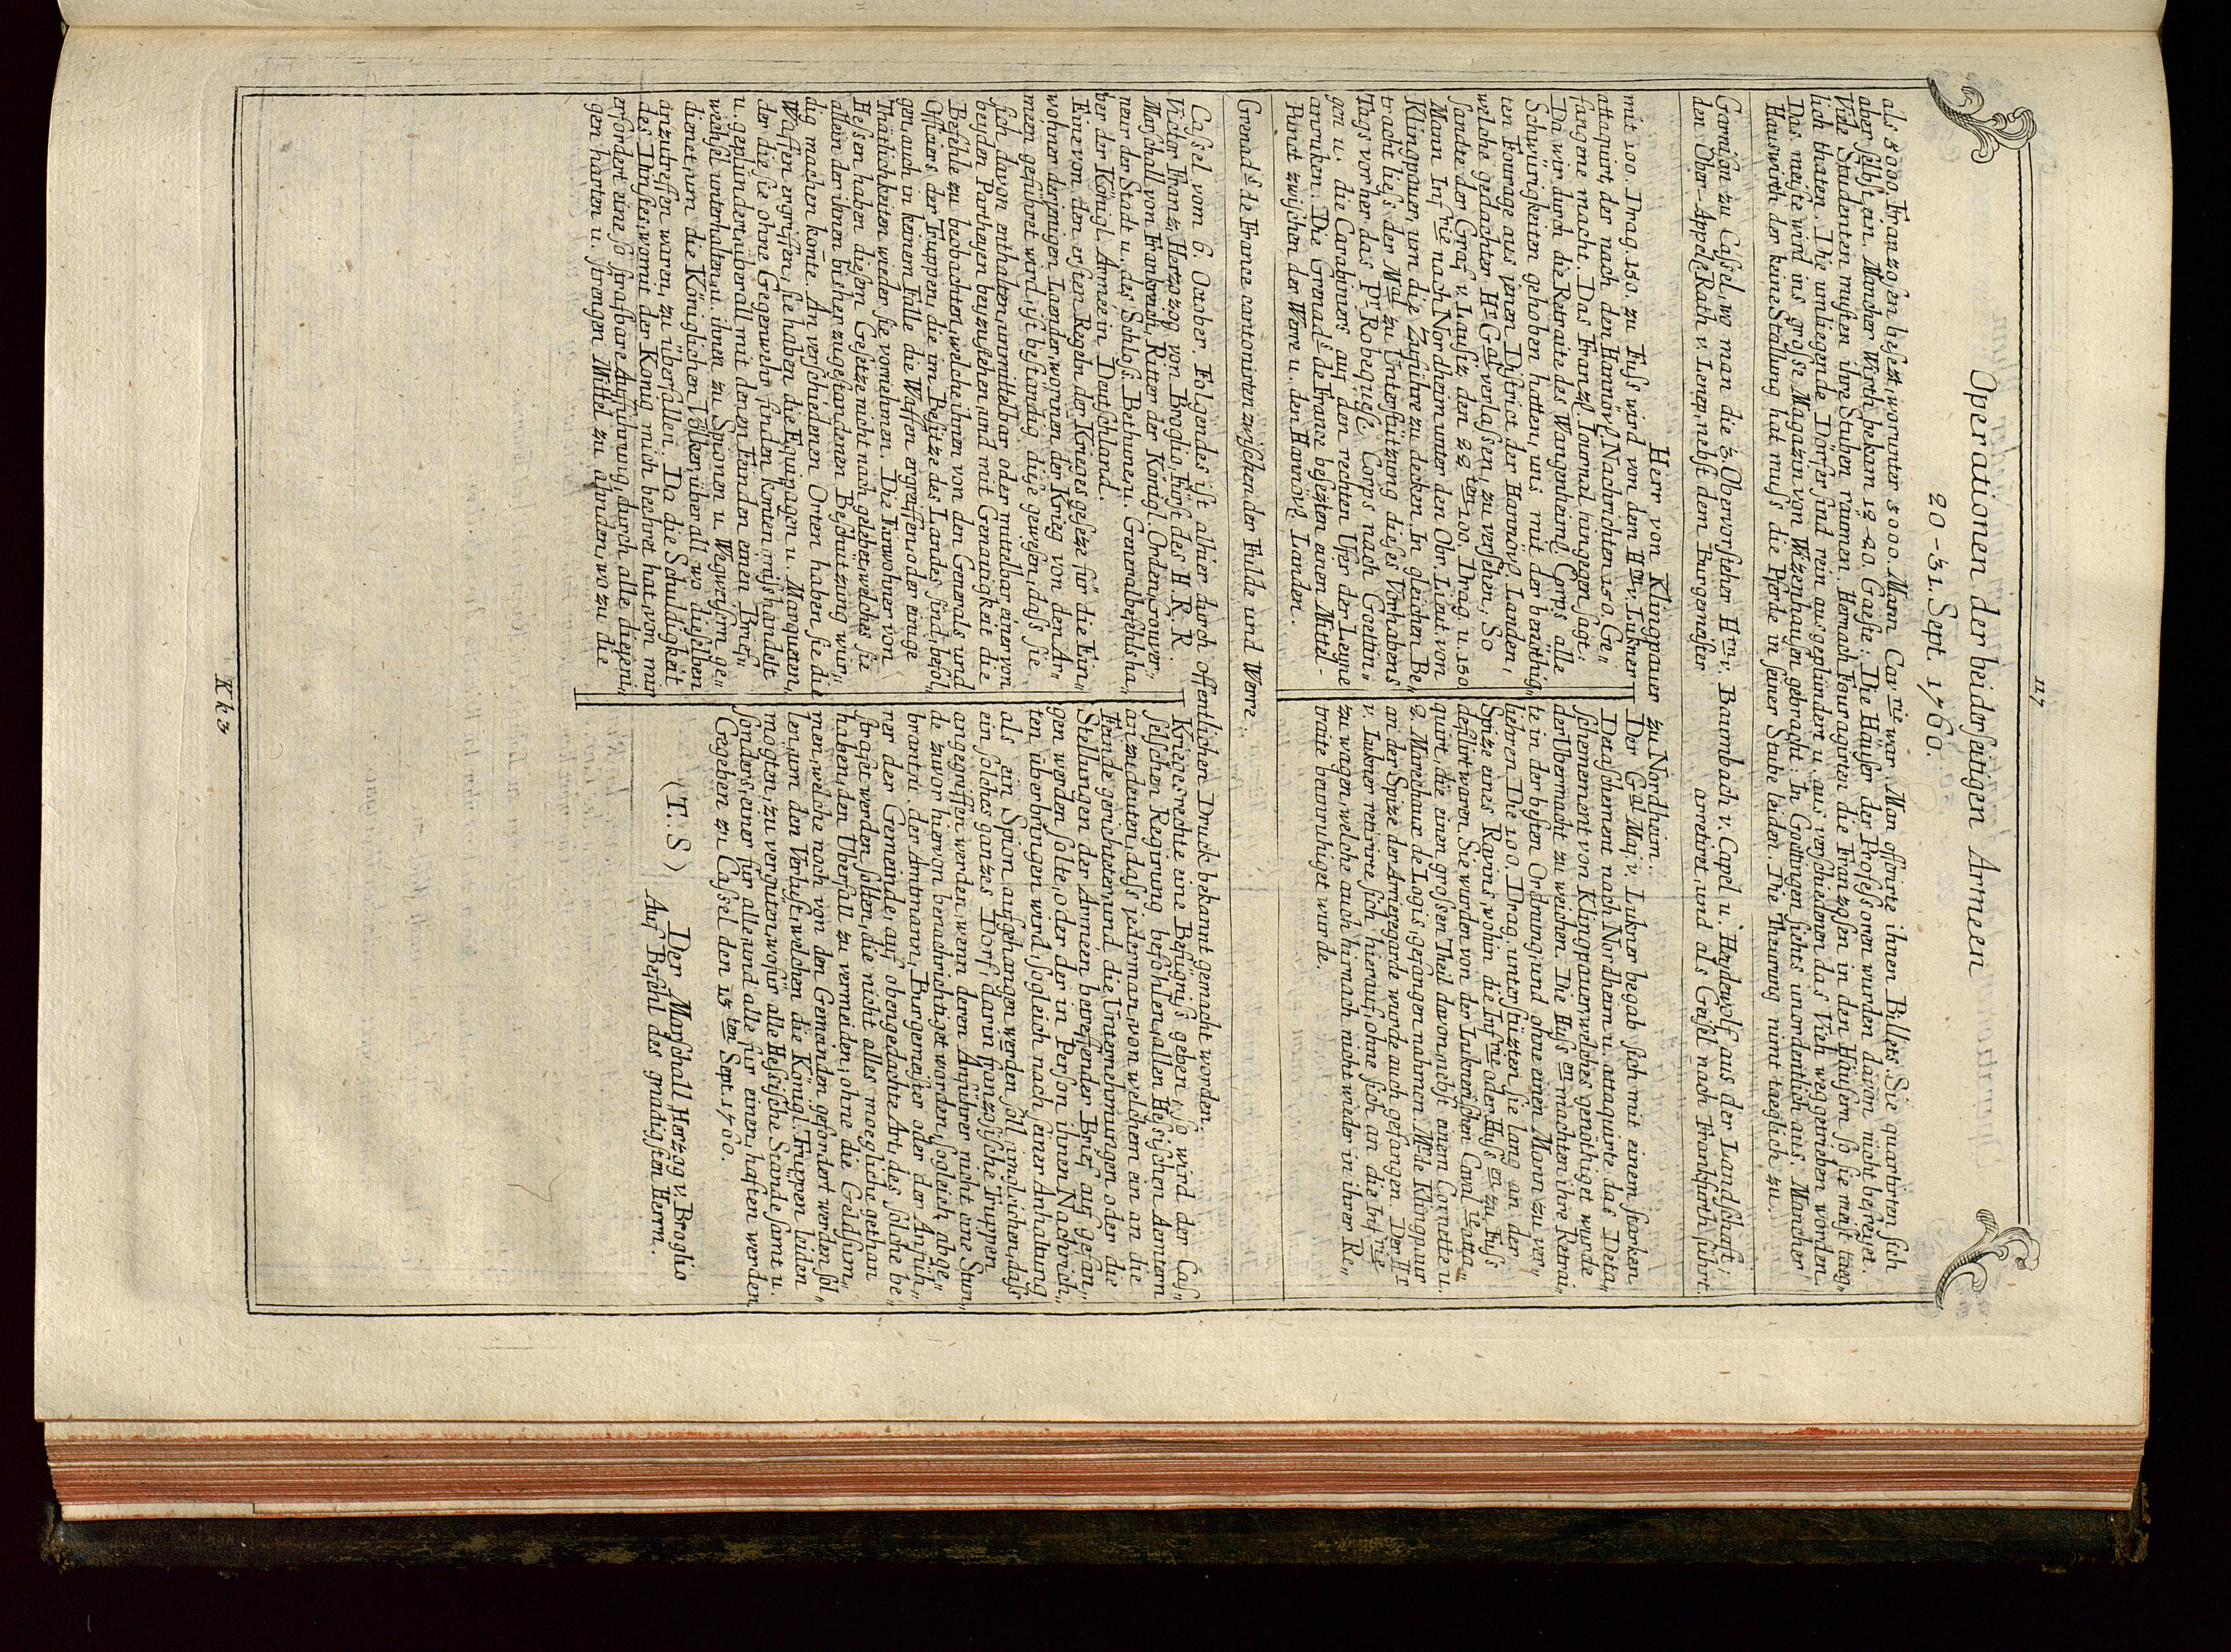 117
Operationen der beiderseitigen Armeen
20-31. Sept. 1760.
als 8000. Franzosen besezt, worunter 3000. Mann Cavrie war. Man offerirte ihnen Billets. Sie quartirten sich
aber selbst ein. Mancher Wirth bekam 12-20. Gaeste: Die Häuser der Professoren wurden davon nicht befreiet.
Viele Studenten musten ihre Stuben raumen. Hernach Fouragirten die Franzosen in den Häusern so sie meist taeg„
lich thaten. Die umliegende Dörfer sind rein ausgeplündert u. aus verschiedenen das Vieh weggetrieben worden.
Das meiste wird ins grosse Magazin von Wizenhausen gebracht: In Goettingen siehts unordentlich aus. Mancher
Hauswirth der keine Stallung hat muss die Pferde in seiner Stube leiden. Die Theurung nimt taeglich zu.
Garnison zu Cassel, wo man die 3. Obervorsteher Hrn v. Baumbach v. Capel u. Heydewolf aus der Landschaft;
den Ober-Appels. Rath v. Lenep, nebst dem Burgermeister arretiret, und als Geissel nach Frankfurth führt.
Herr von Klingpauer zu Nordheim.
mit 100. Drag. 150. zu Fuss wird von dem Hrn v. Lukner
attaquirt, der nach den Hannövr. Nachrichten 150. Ge„
fangene macht. Das Franzl. Journal, hingegen, sagt:
Da wir durch die Retraite des Wangenheiml. Corps alle
Schwürigkeiten gehoben hatten, uns mit der benöthig„
ten Fourage aus jenen District der Hannövr. Landen,
welche gedachter Hr Gal verlassen, zu versehen; So
sandte der Graf v. Lausiz den 22ten 100. Drag. u. 150
Mann Infrie nach Nordheim unter den Obr. Lieut. von
Klingpauer, um die Zufuhre zu decken. In gleichen Be„
tracht lies der Mal zu Unterstützung dieses Vorhabens
Tags vorher das Pr Robequise Corps nach Goettin„
gen u. die Carabiniers auf den rechten Ufer der Leyne
anruken. Die Grenads de France besezten einen Mittel-
Punct zwischen der Werre u. den Hannövr. Landen.
Der Gal Maj. v. Lukner begab sich mit einem starken
Detaschement nach Nordheim u. attaquirte das Deta„
schemement von Klingpauer, welches genöthiget wurde
der Übermacht zu weichen. Die Hussen machten ihre Retrai„
te in der besten Ordnung, und ohne einen Mann zu ver„
liehren. Die 100. Drag. unterstüzten sie lang an der
Spize eines Ravins, wohin die Infrie oder Hussen zu Fuss
defilirt waren. Sie wurden von der Luknerischen Cavalie atta„
quirt, die einen grossen Theil davon, nebst einem Cornette u.
2. Marechaux de Logis, gefangen nahmen. Mr de Klingpaur
an der Spize der Arrieregarde wurde auch gefangen. Der Hr
v. Lukner retirirte sich hierauf, ohne sich an die Infrie
zu wagen, welche auch hirnach nicht wieder in ihrer Re„
traite beunruhiget wurde.
Grenads de France cantonirten zwischen der Fulde und Werre.
Cassel vom 6. October. Folgendes ist alhier durch öffentlichen Druck bekannt gemacht worden:
Victor Franz, Herzozog von Broglio, Fürst des H. R. R.
Marschall von Frankreich, Ritter der Königl. Orden, Gouver„
neur der Stadt u. des Schloss Bethune u. Generalbefehlsha„
ber der Königl. Armée in Deutschland.
Eine von den ersten Regeln der Krieges gesetze für die Ein„
wohner derjenigen Laender, worinnen der Krieg von den Ar„
meen geführet wird, ist bestaendig diese gewesen, dass sie
sich davon enthalten, unmittelbar oder mittelbar einer von
beyden Partheyen beyzustehen, und mit Genauigkeit die
Befehle zu beobachten, welche ihnen von den Generals und
Officiers der Truppen, die im Besitze des Landes sind, befol„
gen, auch in keinem Falle die Waffen ergreiffen, oder einige
Thätlichkeiten wieder sie vornehmen. Die Einwohner von
Hessen haben diesem Gesetze nicht nach gelebet, welches sie
allein der ihnen bisher zugestandenen Beschützung wür„
dig machen konte. An verschiedenen Orten haben sie die
Waffen ergriffen, sie haben die Equipagen u. Marqueten„
der die sie ohne Gegenwehr finden konten, mishandelt
u. geplündert, überall mit denen Feinden einen Brief„
wechsel unterhalten u. ihnen zu Spionen u. Wegweisern ge„
dienet, um die Königlichen Völker, überall, wo dieselben
anzutreffen waren, zu überfallen. Da die Schuldigkeit
des Dinstes, womit der König mich beehret hat, von mir
erfordert eine so strafbare Aufführung, durch alle diejeni„
gen harten u. strengen Mittel zu ahnden, wozu die
Krieges rechte eine Befügniss geben, so wird der Cas„
selschen Regirung befohlen, allen Hessischen Aemtern
anzudeuten, dass jederman, von welchem ein an die
Feinde gerichteter, und die Unternehmungen oder die
Stellungen der Armeen betreffender Brief auf gefan„
gen werden solte, oder der in Person ihnen Nachrich„
ten überbringen wird, sogleich nach seiner Anhaltung
als ein Spion aufgehangen werden soll, imgleichen, dass
ein solches ganzes Dorf, darin französische Truppen
angegriffen werden, wenn deren Anführer nicht eine Stun„
de zuvor hiervon benachrichtiget worden, sogleich abge„
brant u. der Amtmann, Burgermeister oder der Anfüh„
rer der Gemeinde, auf obengedachte Art, des solche be„
strafet werden sollen, die nicht alles moegliche gethan
haben, den Überfall zu vermeiden; ohne die Geldsum„
men, welche noch von den Gemeinden gefordert werden sol„
len, um den Verlust, welchen die Königl. Truppen leiden
mögten, zu vergüten, wofür alle Hessische Stände samt u.
sonders, einer für alle, und alle für einen, haften werden
Gegeben zu Cassel den 15ten Sept. 1760.
(T. S) Der Marschall Herzog v. Broglio
Auf Befehl des gnädigsten Herrn.
Kk3